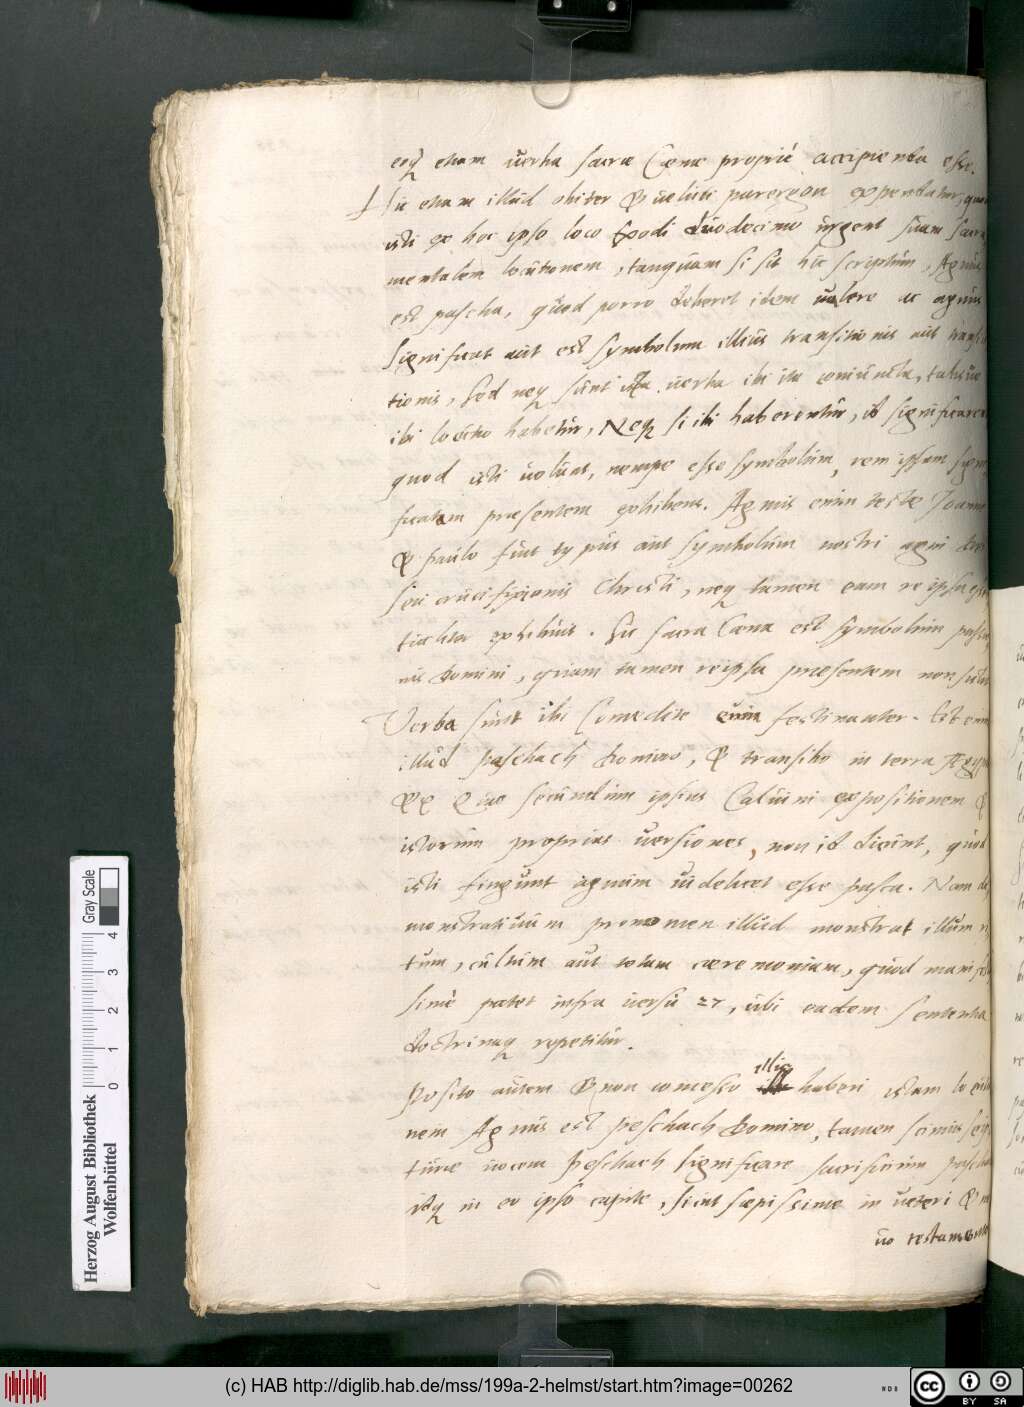 eoq; etiam uerba sacrae Caenae proprié accipienda esse.
Hic etiam illud obiter & ueluti parergon expendatur, quod
isti ex hoc ipso loco Exodi duodecimo urgent suam sacra
mentalem locutionem, tanquam si sit hic scriptum, Agnus
est pascha, quod porro deberet idem ualere ac agnus
significat aut est symbolum illius transitionis aut transi
tionis, Sed neq; sunt ista uerba ibi ita coniuncta, talisue
ibi locutio habetur, Neq; si ibi haberentur, id significarent
quod isti uolunt, nempe esse symbolum, rem ipsam signi
ficatam praesentem exhibens. Agnus enim teste Joanne
& Paulo fuit typus aut symbolum nostri agni
seu crucifixionis Christi, neq; tamen eam re ipsa
exhibuit. Sic sacra Caena est symbolum passio
nis domini, quam tamen reipsa praesentem non
Verba sunt ibi Comedite enim festinanter. Est enim
illud paschach domino, & transibo in terra Aegypti
&c Quae secundum ipsius Caluini expositionem &
istorum proprias uersiones, non id dicunt, quod
isti fingunt agnum uidelicet esse pasca. Nam de
monstratiuum pronomen illud monstrat illum ri
tum, cultum aut totam caeremoniam, quod manifestis
simè patet infra uersu 27, ubi eadem sententia
doctrinaq; repetitur.
Posito autem & non concesso illic haberi istam locutio
nem Agnus est peschach domino, tamen scimus
uocem Peschach significare sacrificium paschae
idq; in eo ipso capite, sicut saepissime in ueteri & no
uo testamento
Herzog August Bibliothek
Wolfenbüttel
0 1 2 3 4
Gray Scale
(c) HAB http://diglib.hab.de/mss/199a-2-helmst/start.htm?image=00262
cc BY SA